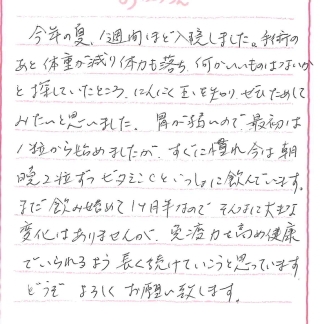 今年の夏、1週間ほど入院しました。手術の
あと体重が減り体力も落ち、何かいいものはないか
と探していたところ、にんにく玉を知り、ぜひためして
みたいと思いました。胃が弱いので最初は
1粒から始めましたが、すぐに慣れ今は朝
晩2粒ずつビタミンCといっしょに飲んでいます。
まだ飲み始めて1ケ月半なので そんなに大きな
変化はありませんが、免疫力を高め健康
でいられるよう 長く続けていこうと思っています
どうぞ よろしく お願い致します。